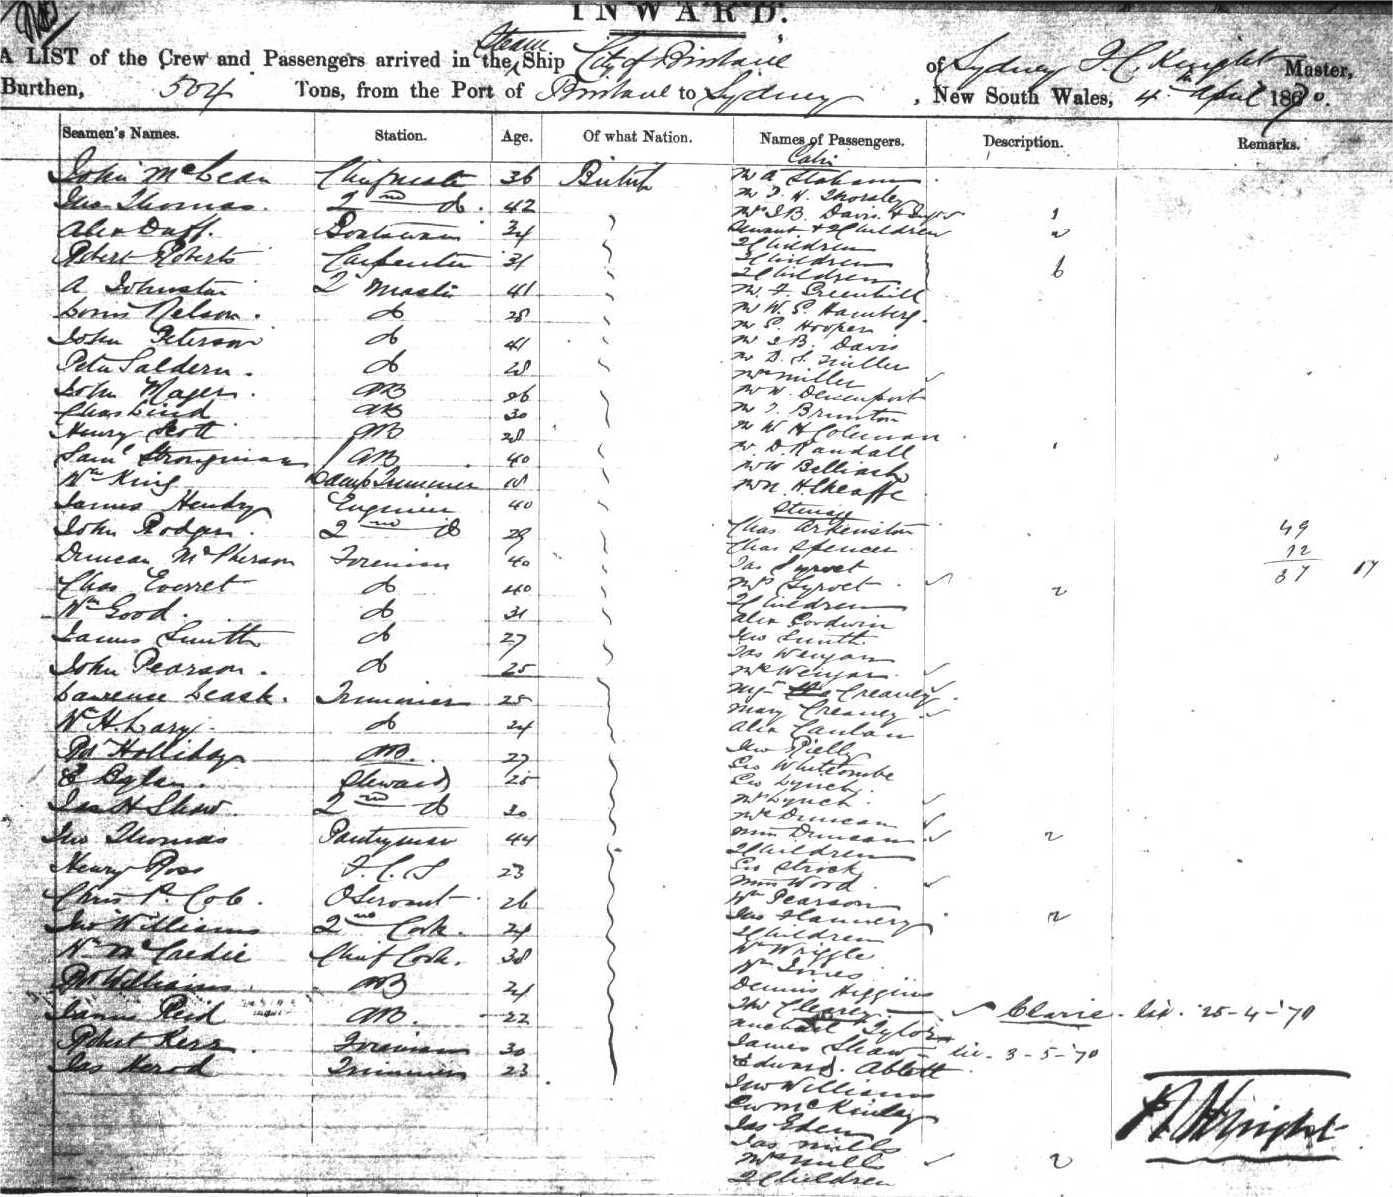 INWARD.
A LIST of the Crew and Passengers arrived in the Steam Ship City of Brisbane of Sydney T. C. Knight Master,
Burthen, 504 Tons, from the Port of Brisbane to Sydney, New South Wales, 4th April 1870.
Seamen's Names. Station. Age. Of what Nation. Names of Passengers. Description. Remarks.
John McLean Chief Mate 36 British
Jno. Thomas. 2nd do. 42
Alex Duff. Boatswain 34
Robert Roberts Carpenter 31
A Johnston 2 Master 41
Louis Nelson. do 28
John Peterson do 41
Peter Saldern. do 28
John Mager. AB 26
Chas Lind AB 30
Henry Scott AB 28
Saml Strongman AB 40
Wm King Lamp Trimmer 18
James Hendry Engineer 40
John Rodger. 2nd do 29
Duncan McPherson Fireman 40
Chas Everret do 40
Wm Good. do 31
James Smith do 27
John Pearson. do 25
Lawrence Leask. Trimmer 25
W. H. Lary. do 24
Rd Holliday AB. 27
Steward 25
Jas H Shaw. 2nd do 30
Jno Thomas Pantryman 44
Henry Ross F. C. S 23
Chris P. Cole. O Servant 26
Jno Williams 2nd Cook. 24
Wm McCardie Chief Cook. 38
Williams AB 24
James Reid AB. 22
Robert Kerr Fireman 30
Jas Herod Trimmer 23
Cabin
Mr A Statham
Mr T. H. Thornley
Mrs J. B. Davis &
Servant & 2 Children 2
2 Children
2 Children
2 Children 6
Mr. F. Greenhill
Mr W. S. Hamberg.
Mr S. Hooper
Mr J B. Davis
Mr D. S. Miller
Mrs Miller
Mr W. Devenport
Mr J. Brunton
Mr W H Coleman
Mr. D. Randall
Mr W
Mr H. Sheaffe
Steerage
Chas Arkenston 49
Chas Spencer 12
Jas Syrvet 37 17
Mrs Syrvet 2
2 Children
Alex Goodwin
Jno Smith
Jas Wenyan
Mrs Wenyan
Creaney
Mary Creaney
Alex Canlan
Jno Rielly
Geo Whitcombe
Geo Lynch
Mrs Lynch.
Mrs Duncan
Miss Duncan 2
2 Children
Geo Strick
Miss Wood
Wm Pearson
Jas Flannery 2
2 Children
Wm Wriggle
Wm Innes
Dennis Higgins
Clavie - lid. 25-4-'70
Michael Tylor
James Shaw - lic - 3-5-'70
Edward. Abbott
Jno Williams
Geo McKinlay
Jas Eden
Jas Mills
Mrs Mills 2
2 Children